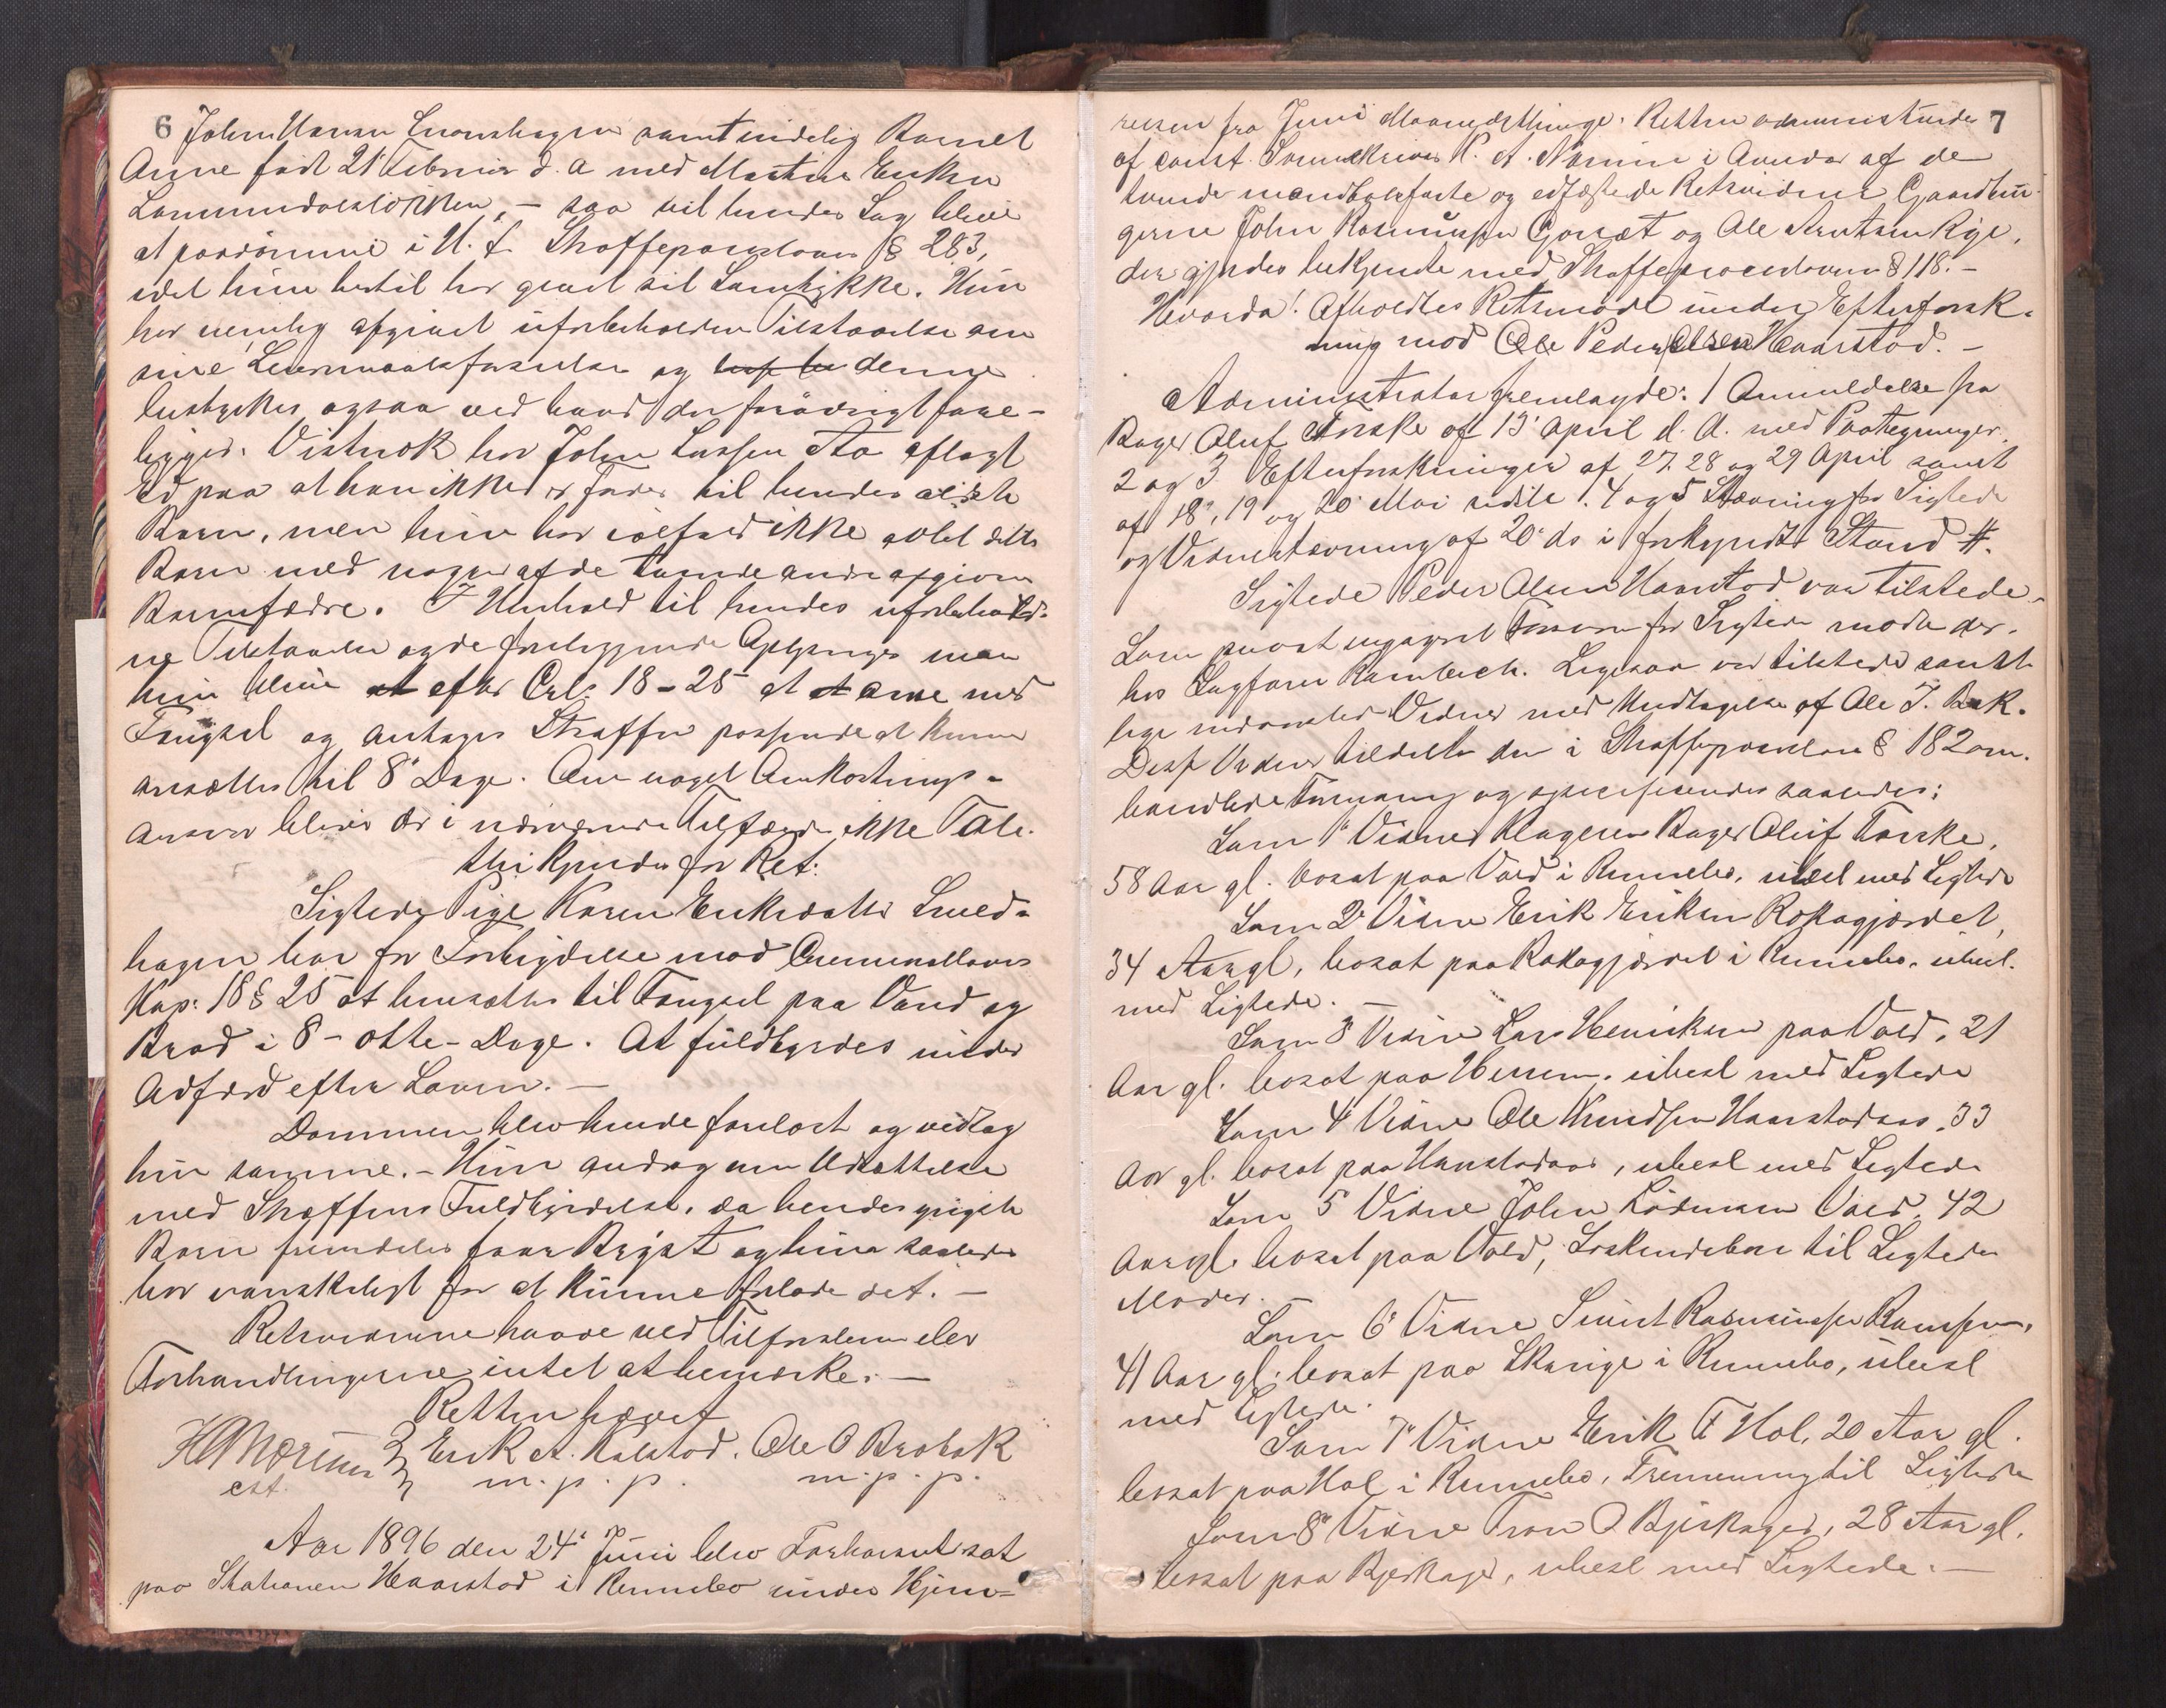 6 John Hansen Svonshagen samt endelig Barnet
Anne født 21' Februar d. A. med Martin Eriksen
Lommundalsløkken, - saa vil hendes Sag blive
at paadømme i H. t. Straffeproceslovens § 283,
idet hun hertil har givet sit Samtykke. Hun
har nemlig afgivet uforbeholden Tilstaaelse om
sine Leiermaalsforseelser og denne
bestyrkes ogsaa ved hvad der forøvrigt fore-
ligger. Vistnok har John Larssen Aa aflagt
Ed paa at han ikke er Fader til hendes ældste
Barn, men hun har ialfald ikke avlet dette
Barn med nogen af de tvende andre opgivne
Barnefædre. I Henhold til hendes uforbehold-
ne Tilstaaelse og de foreliggende Oplysninger maa
hun blive efter Crl. 18-25 at dømme med
Fængsel og antages Straffen passende at kunne
ansættes til 8' Dage. Om noget Omkostnings-
ansvar bliver der i nærværende Tilfælde ikke Tale.
Thi kjendes for Ret:
Sigtede Pige Karen Eriksdatter Sved-
hagen bør for Forbrydelse mod Criminallovens
Kap: 18 § 25 at hensættes til Fængsel paa Vand og
Brød i 8 - otte - Dage. At fuldbyrdes under
Adfærd efter Loven. -
Dommen blev hende forelæst og vedtog
hun samme. - Hun androg om Udsættelse
med Straffens Fuldbyrdelse, da hendes yngste
Barn fremdeles faar Bryst og hun saaledes
har vanskeligt for at kunne forlade det. -
Retsvidnerne havde ved Tilførselen eller
Forhandlingerne intet at bemærke. -
Retten hævet
Erik A. Kalstad. Ole O Brobak
cst. m. p. p. m. p. p.
Aar 1896 den 24' Juni blev Forhørsret sat
paa Skationen Haarstad i Rennebo under Hjem-
7
reisen fra Juni Maanedsthinge. Retten administreredes
af const. Sorenskriver K. A. Nærim i Overvær af de
tvende mandtalsførte og edfæstede Retsvidner Gaardbru-
gerne John Rasmussen Gorsæt og Ole Arntsen Rise,
der gjordes bekjendte med Straffeproceslovens § 118. -
Hvorda! Afholdtes Retsmøde under Efterforsk-
ning mod Ole Peder Olsen Haarstad. -
Administrator fremlagde: 1 Anmeldelse fra
Bager Oluf Torske af 13' April d. A. med Paategninger.
2 og 3 Efterforskninger af 27. 28 og 29 April samt
af 18', 19 og 20' Mai sidstl. 4 og 5 Stævning for Sigtede
og Vidnestævning af 20' ds i forkyndt Stand #.
Sigtede Peder Olsen Haarstad var tilstede.
Som privat engageret Forsvarer for Sigtede mødte der-
hos Sagfører Rambech. Ligesaa var tilstede samt-
lige indvarslede Vidner med Undtagelse af Ole J. Bak.
Disse Vidner tildeltes den i Straffeprocesloven § 182 om-
handlede Formaning og specificeredes saaledes:
Som 1' Vidne Klageren Bager Oluf Torske,
58 Aar gl. bosat paa Vold i Rennebo, ubesl med Sigtede
Som 2' Vidne Erik Eriksen Rokagjærdet,
34 Aar gl, bosat paa Rokagjærdet i Rennebo, ubesl.
med Sigtede. -
Som 3' Vidne Lars Henriksen paa Vold, 21
Aar gl. bosat paa Herrem, ubesl med Sigtede
Som 4' Vidne Ole Knudsen Haarstadaas, 33
Aar gl. bosat paa Haarstadaas, ubesl med Sigtede
Som 5' Vidne John Vold, 42
Aar gl. bosat paa Vold, Søskendebarn til Sigtedes
Moder. -
Som 6' Vidne Sivert Rasmussen Ramsem,
41 Aar gl. bosat paa Skarige i Rennebo, ubesl
med Sigtede.
Som 7' Vidne Erik T Hol, 20 Aar gl.
bosat paa Hol i Rennebo, Tremenning til Sigtede
Som 8' Vidne Tron O Bjerkager, 28 Aar gl.
bosat paa Bjerkager, ubesl med Sigtede. -